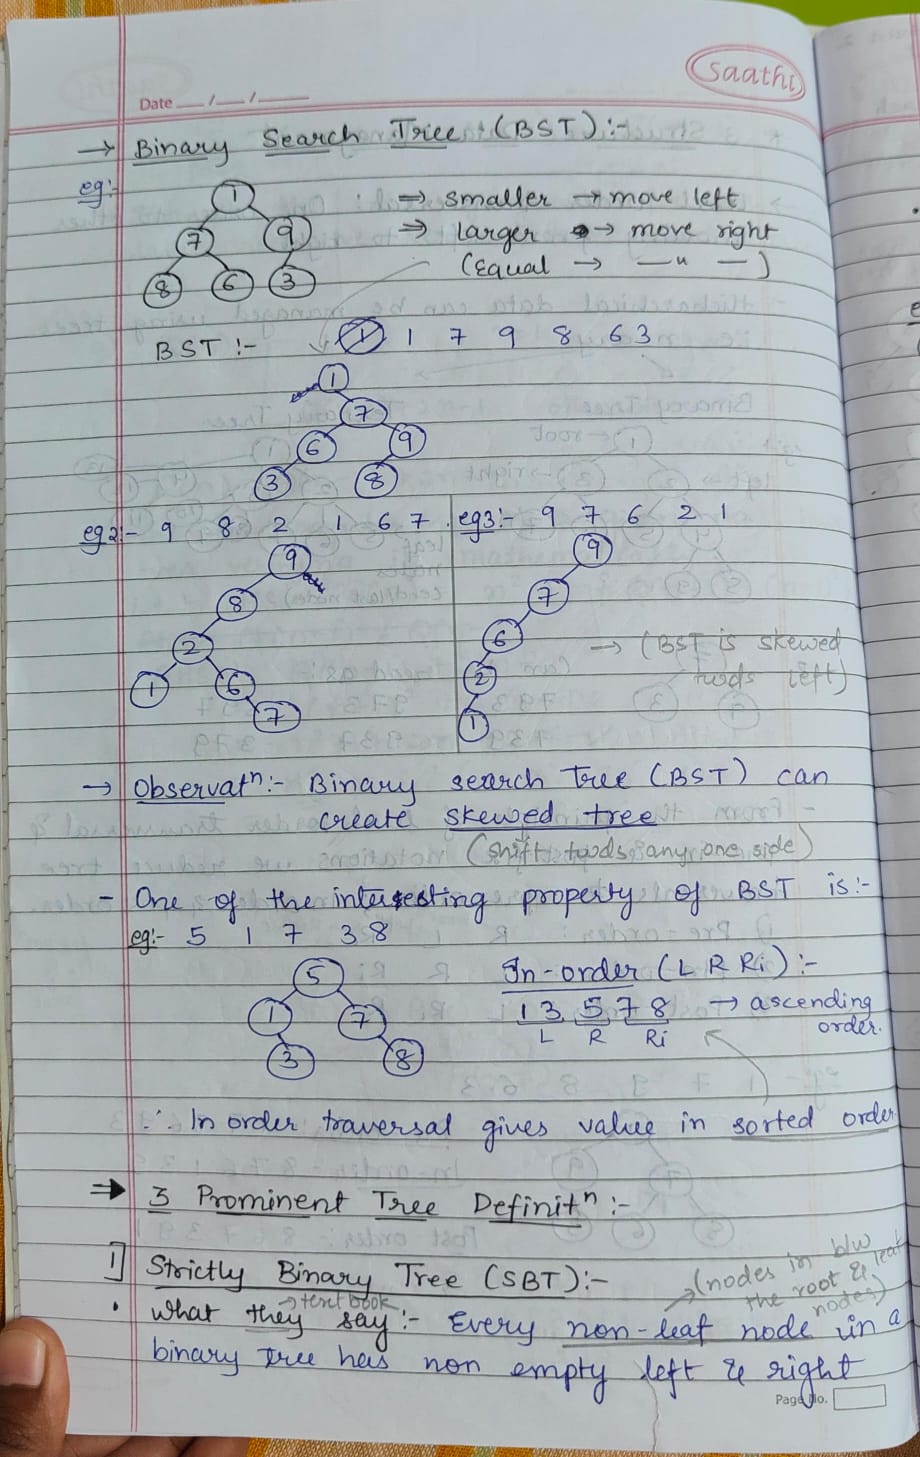 Saathi
Date __/__/__
→ Binary Search Tree (BST) :-
eg:-
1
7 9
8 6 3
⇒ smaller → move left
⇒ larger → move right
(Equal → —"—)
BST :- 1 1 7 9 8 6 3
1
7
6 9
3 8
eg2:- 9 8 2 1 6 7
9
8
2
1 6
7
eg3:- 9 7 6 2 1
9
7
6
2
1
→ (BST is skewed
twds left)
→ Observatⁿ:- Binary search tree (BST) can
create skewed tree
(shift twds any one side)
- One of the interesting property of BST is:-
eg:- 5 1 7 3 8
5
1 7
3 8
In-order (L R Ri) :-
1 3 5 7 8 → ascending
order.
L R Ri
∴ In order traversal gives value in sorted order
⇒ 3 Prominent Tree Definitⁿ :-
1] Strictly Binary Tree (SBT):-
(nodes in b/w
the root & leaf
nodes)
→ text book
• What they say :- Every non-leaf node in a
binary tree has non empty left & right
Page No.